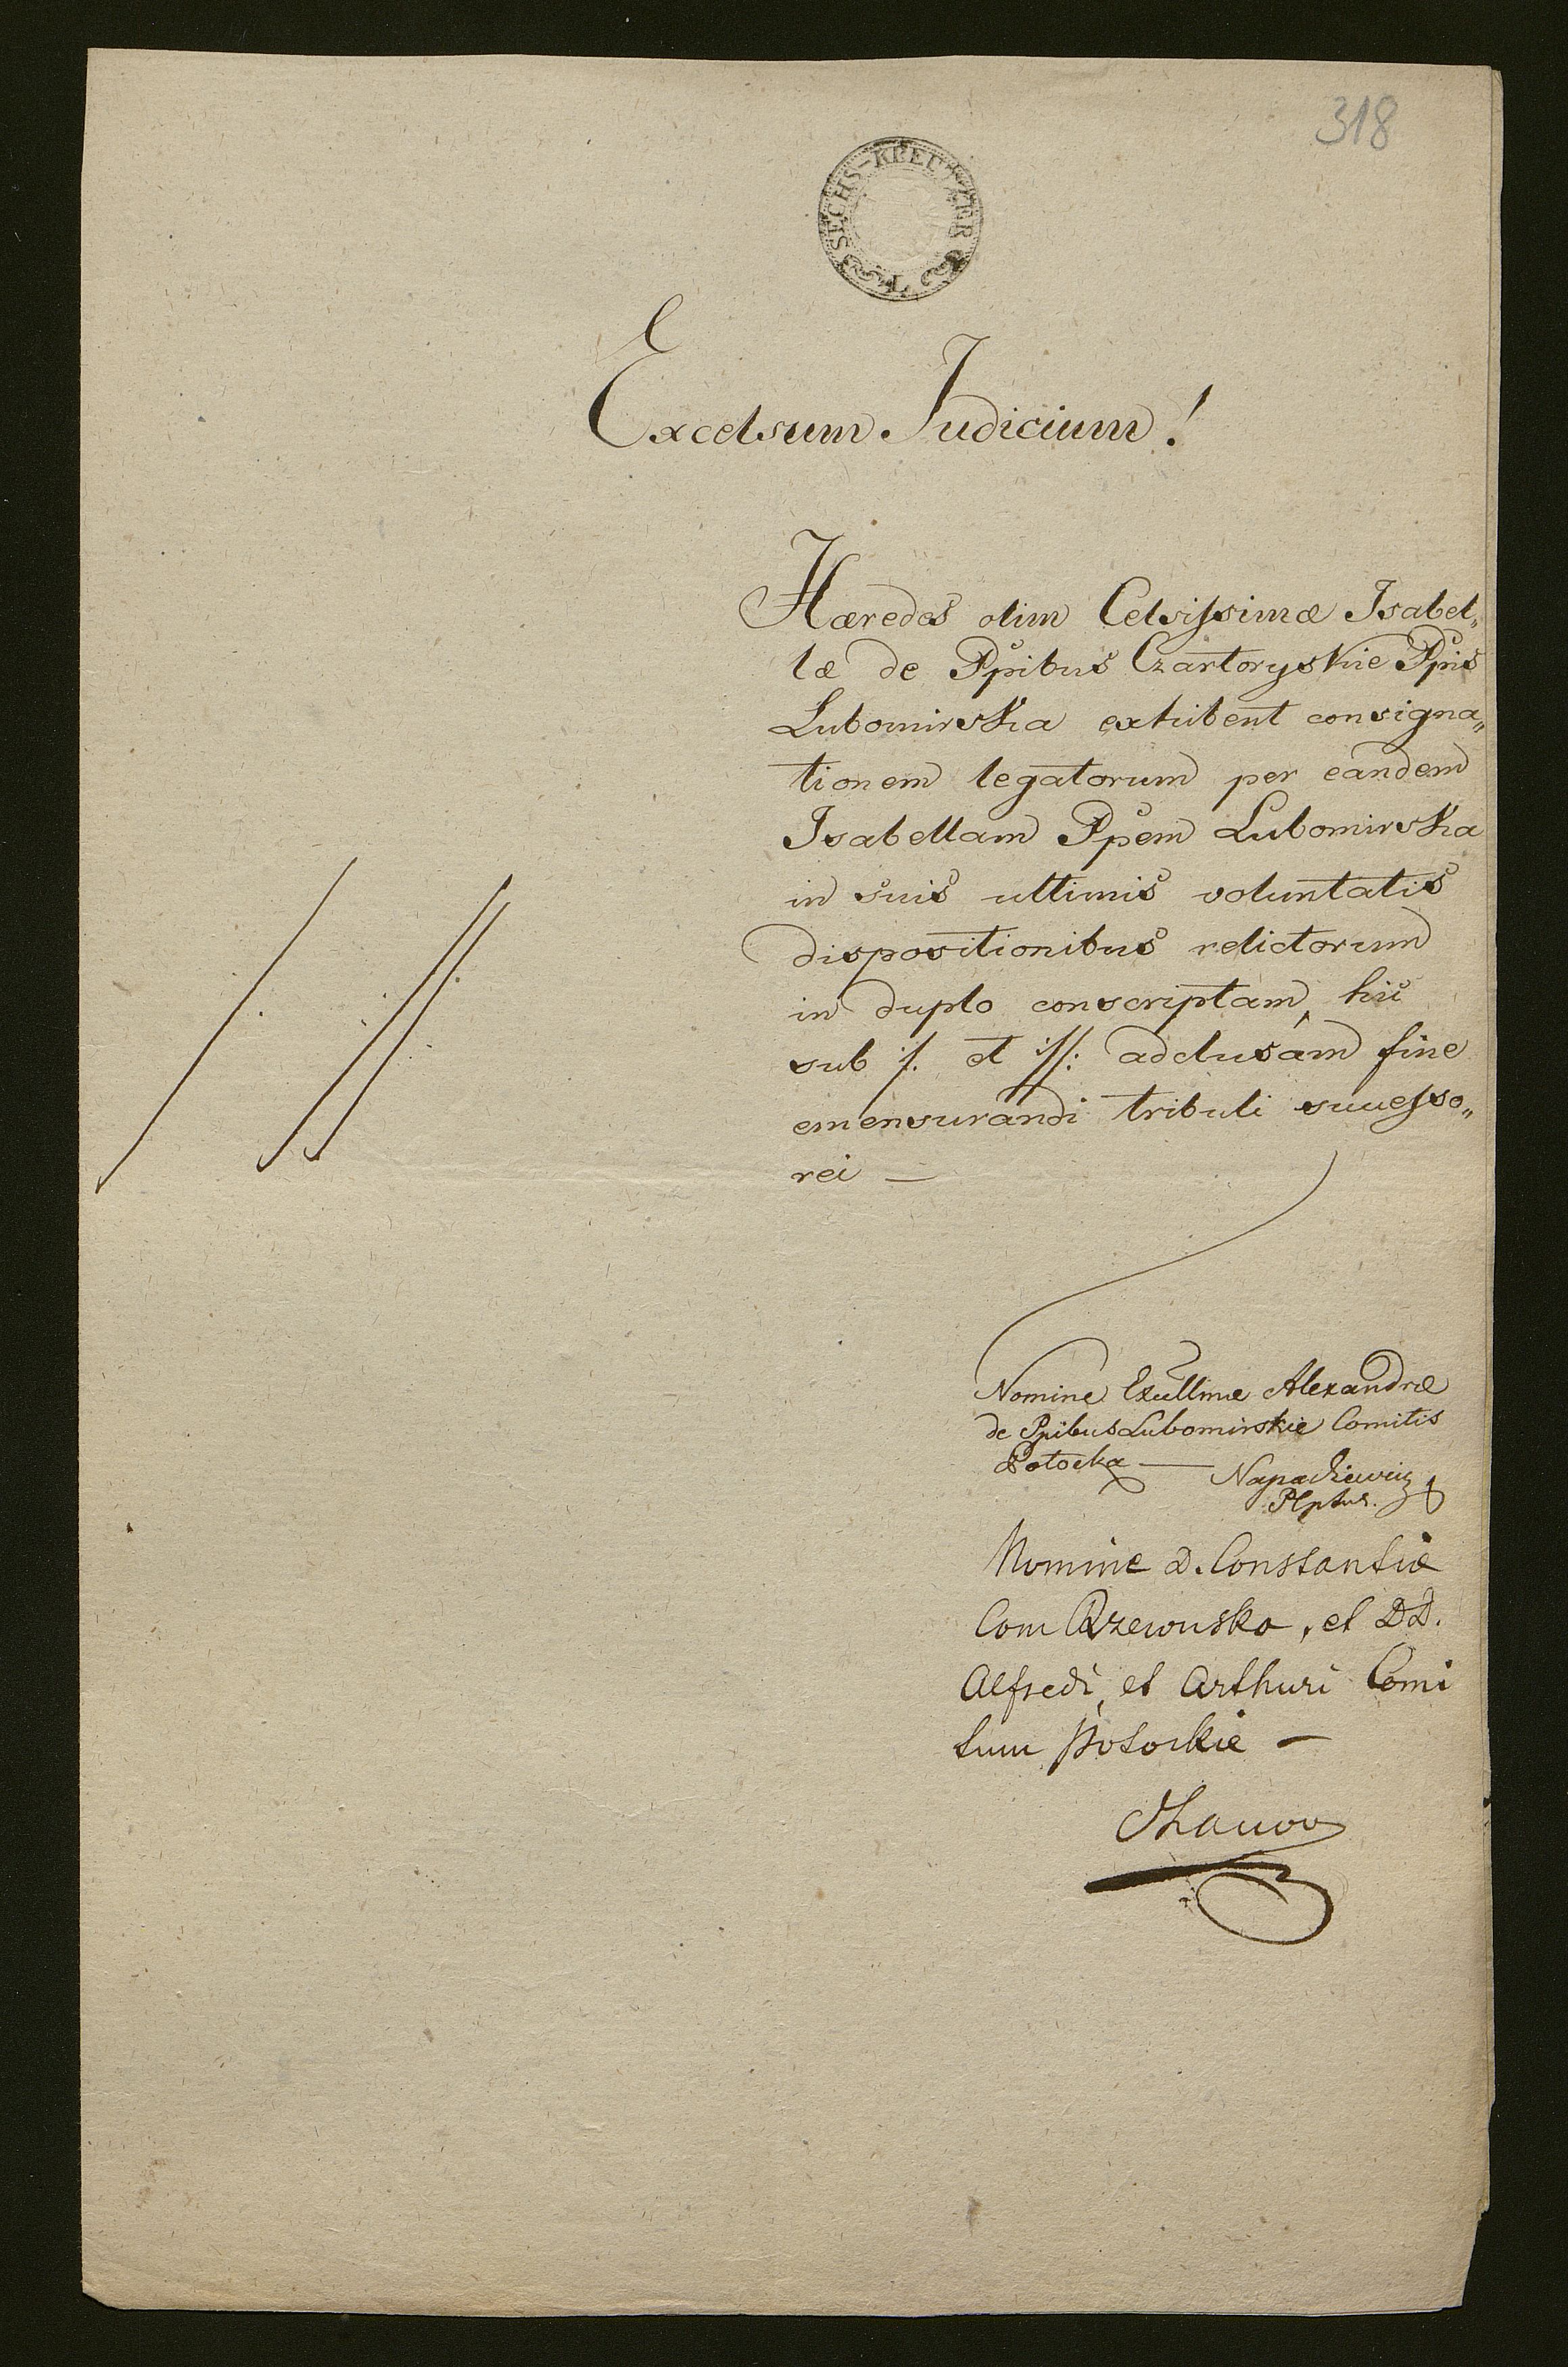 318
SECHS-KREUTZER
L
Excelsum Judicium!
Hæredes olim Celsissimæ Isabel„
læ de Ppibus Czartoryskie Ppis
Lubomirska exhibent consigna„
tionem legatorum per eandem
Isabellam Ppem Lubomirska
in suis ultimis voluntatis
dispositionibus relictorum
in duplo conscriptam, hic
sub /. et //: adclusam fine
emensurandi tributi successo„
rei —
Nomine Alexandræ
de Ppibus Lubomirskie Comitis
Potocka —
Plptus.
Nomine D. Constantiæ
Com Rzewuska, et DD.
Alfredi, et Arthuri Comi
tum Potockie —